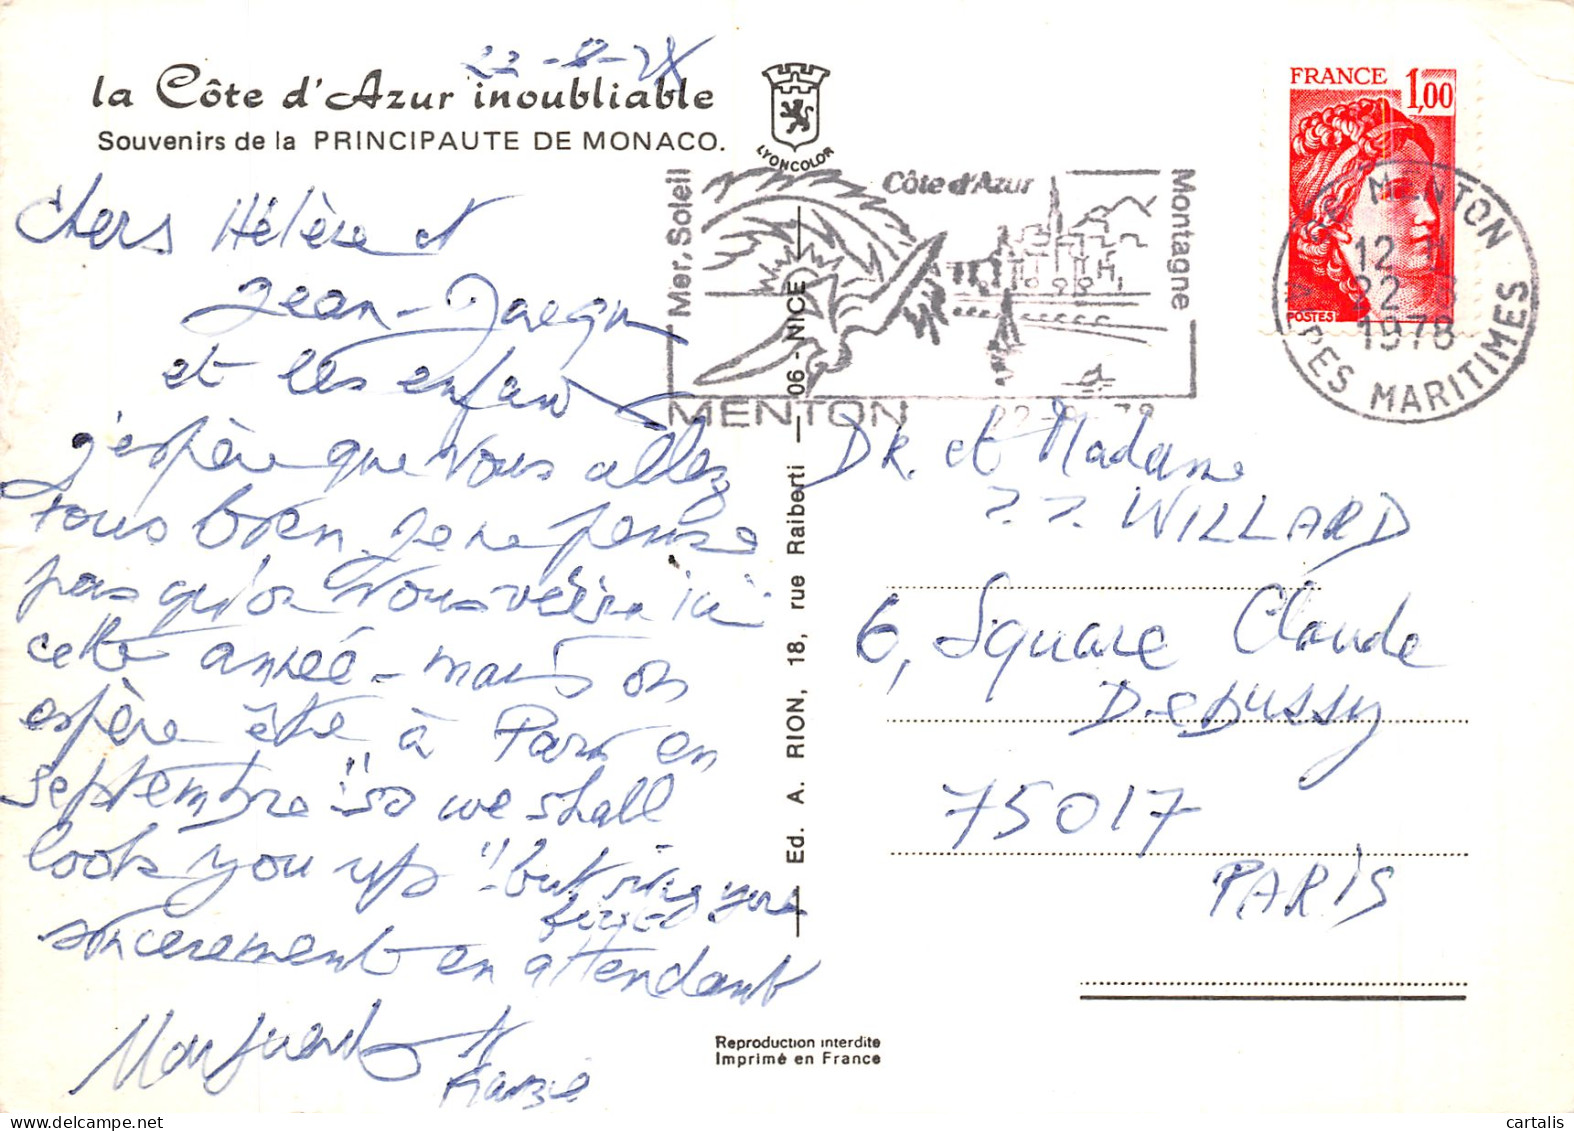 22-8-78
la Côte d'Azur inoubliable
Souvenirs de la PRINCIPAUTE DE MONACO.
LYONCOLOR
Chers Hélène et
Jean-Jacques
et les enfants
j'espère que vous allez
tous bien. Je ne pense
pas qu'on vous verra ici
cette année - mais on
espère être à Paris en
septembre "so we shall
look you up" - but
sincerement en attendant
Marguerite
Ed. A. RION, 18, rue Raiberti - 06 - NICE
Reproduction interdite
Imprimé en France
Mer, Soleil
Côte d'Azur
Montagne
MENTON
22-8-78
FRANCE 1,00
POSTES
MENTON
12 H
22-8
1978
ALPES MARITIMES
Dr. et Madame
J. J. WILLARD
6, Square Claude
Debussy
75017
PARIS
cartalis